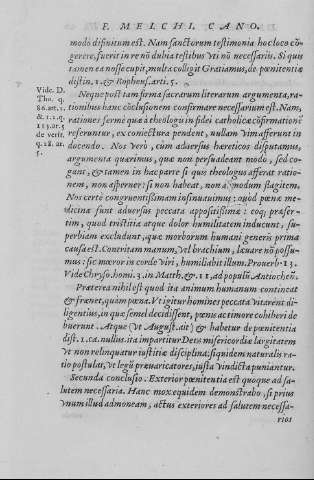 F. MELCHI. CANO.
modo difinitum est. Nam sanctorum testimonia hoc loco cō-
gerere, fuerit in re nō dubia testibus vti nō necessariis. Si quis
tamen ea nosse cupit, multa collegit Gratianus, de pœnitētia
distin. 1. & Roffens. arti. 5.
Neque post tam firma sacrarum literarum argumenta, ra-
tionibus hanc cōclusionem confirmare necessarium est. Nam,
rationes fermè quæ à theologis in fidei catholicæ cōfirmationē
referuntur, ex coniectura pendent, nullam vim afferunt in
docendo. Nos verò, cùm aduersus hæreticos disputamus,
argumenta quærimus, quæ non persuadeant modo, sed co-
gant, & tamen in hac parte si quis theologus afferat ratio-
nem, non asperner: si non habeat, non admodum flagitem.
Nos certe congruentissimam insinuauimus: quòd pœnæ me-
dicinæ sunt aduersus peccata appositissimæ: eoq́; præser-
tim, quòd tristitia atque dolor humilitatem inducunt, su-
perbiam excludunt, quæ morborum humani generis prima
causa est. Contritam manum, vel brachium, leuare nō possu-
mus: sic mœror in corde viri, humiliabit illum. Prouerb. 13.
Vide Chryso. homi. 3. in Matth. & 11. ad populū Antiochen.
Præterea nihil est quod ita animum humanum contineat
& frænet, quàm pœna. Vt igitur homines peccata vitarent di-
ligentius, in quæ semel decidissent, pœnis ac timore cohiberi de-
buerunt. Atque (vt August. ait) & habetur de pœnitentia
dist. 1. ca. nullus. ita impartitur Deus misericordiæ largitatem
vt non relinquatur iustitiæ disciplina; siquidem naturalis ra-
tio postulat, vt legū præuaricatores, iusta vindicta puniantur.
Secunda conclusio. Exterior pœnitentia est quoque ad sa-
lutem necessaria. Hanc mox equidem demonstrabo, si prius
vnum illud admoneam, actus exteriores ad salutem necessa-
rios
Vide. D.
Tho. q.
86. art. 1.
& 1. 2. q.
113. ar. 5
de verit.
q. 28. ar.
5.